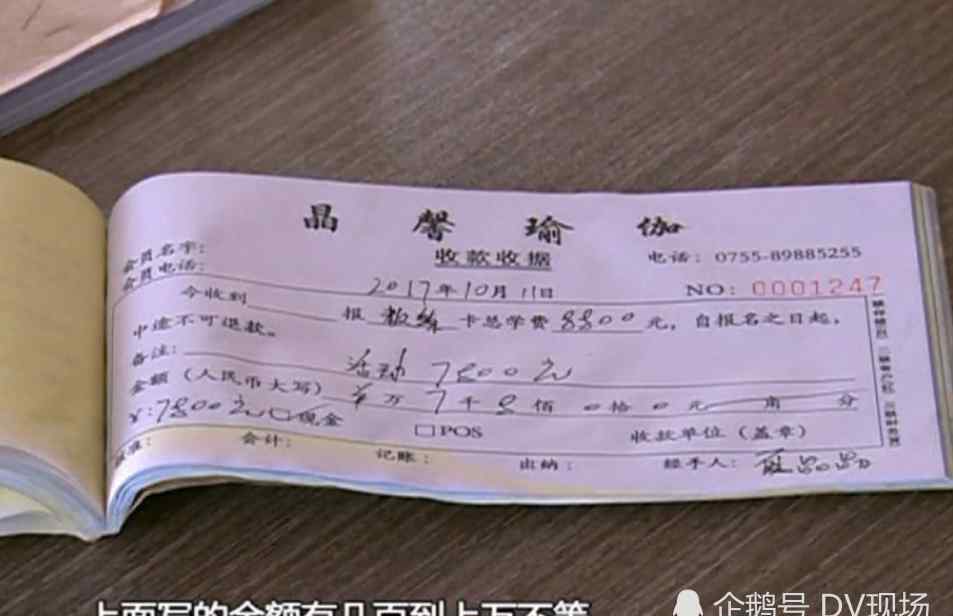 晶馨瑜伽
收款收据
会员名字：
电话：0755-89885255
会员电话：
2017年10月11日
NO：0001247
今收到 报 教练 卡总学费 8800 元，自报名之日起，
中途不可退款。
备注： 活动 7800元
金额（人民币大写） 万 7 千 8 佰 0 拾 0 元 角 分
¥：7800元 □现金 □POS 收款单位（盖章）
核准： 会计： 记账： 出纳： 经手人：
上面写的金额有几百到上万不等
企鹅号 DV现场